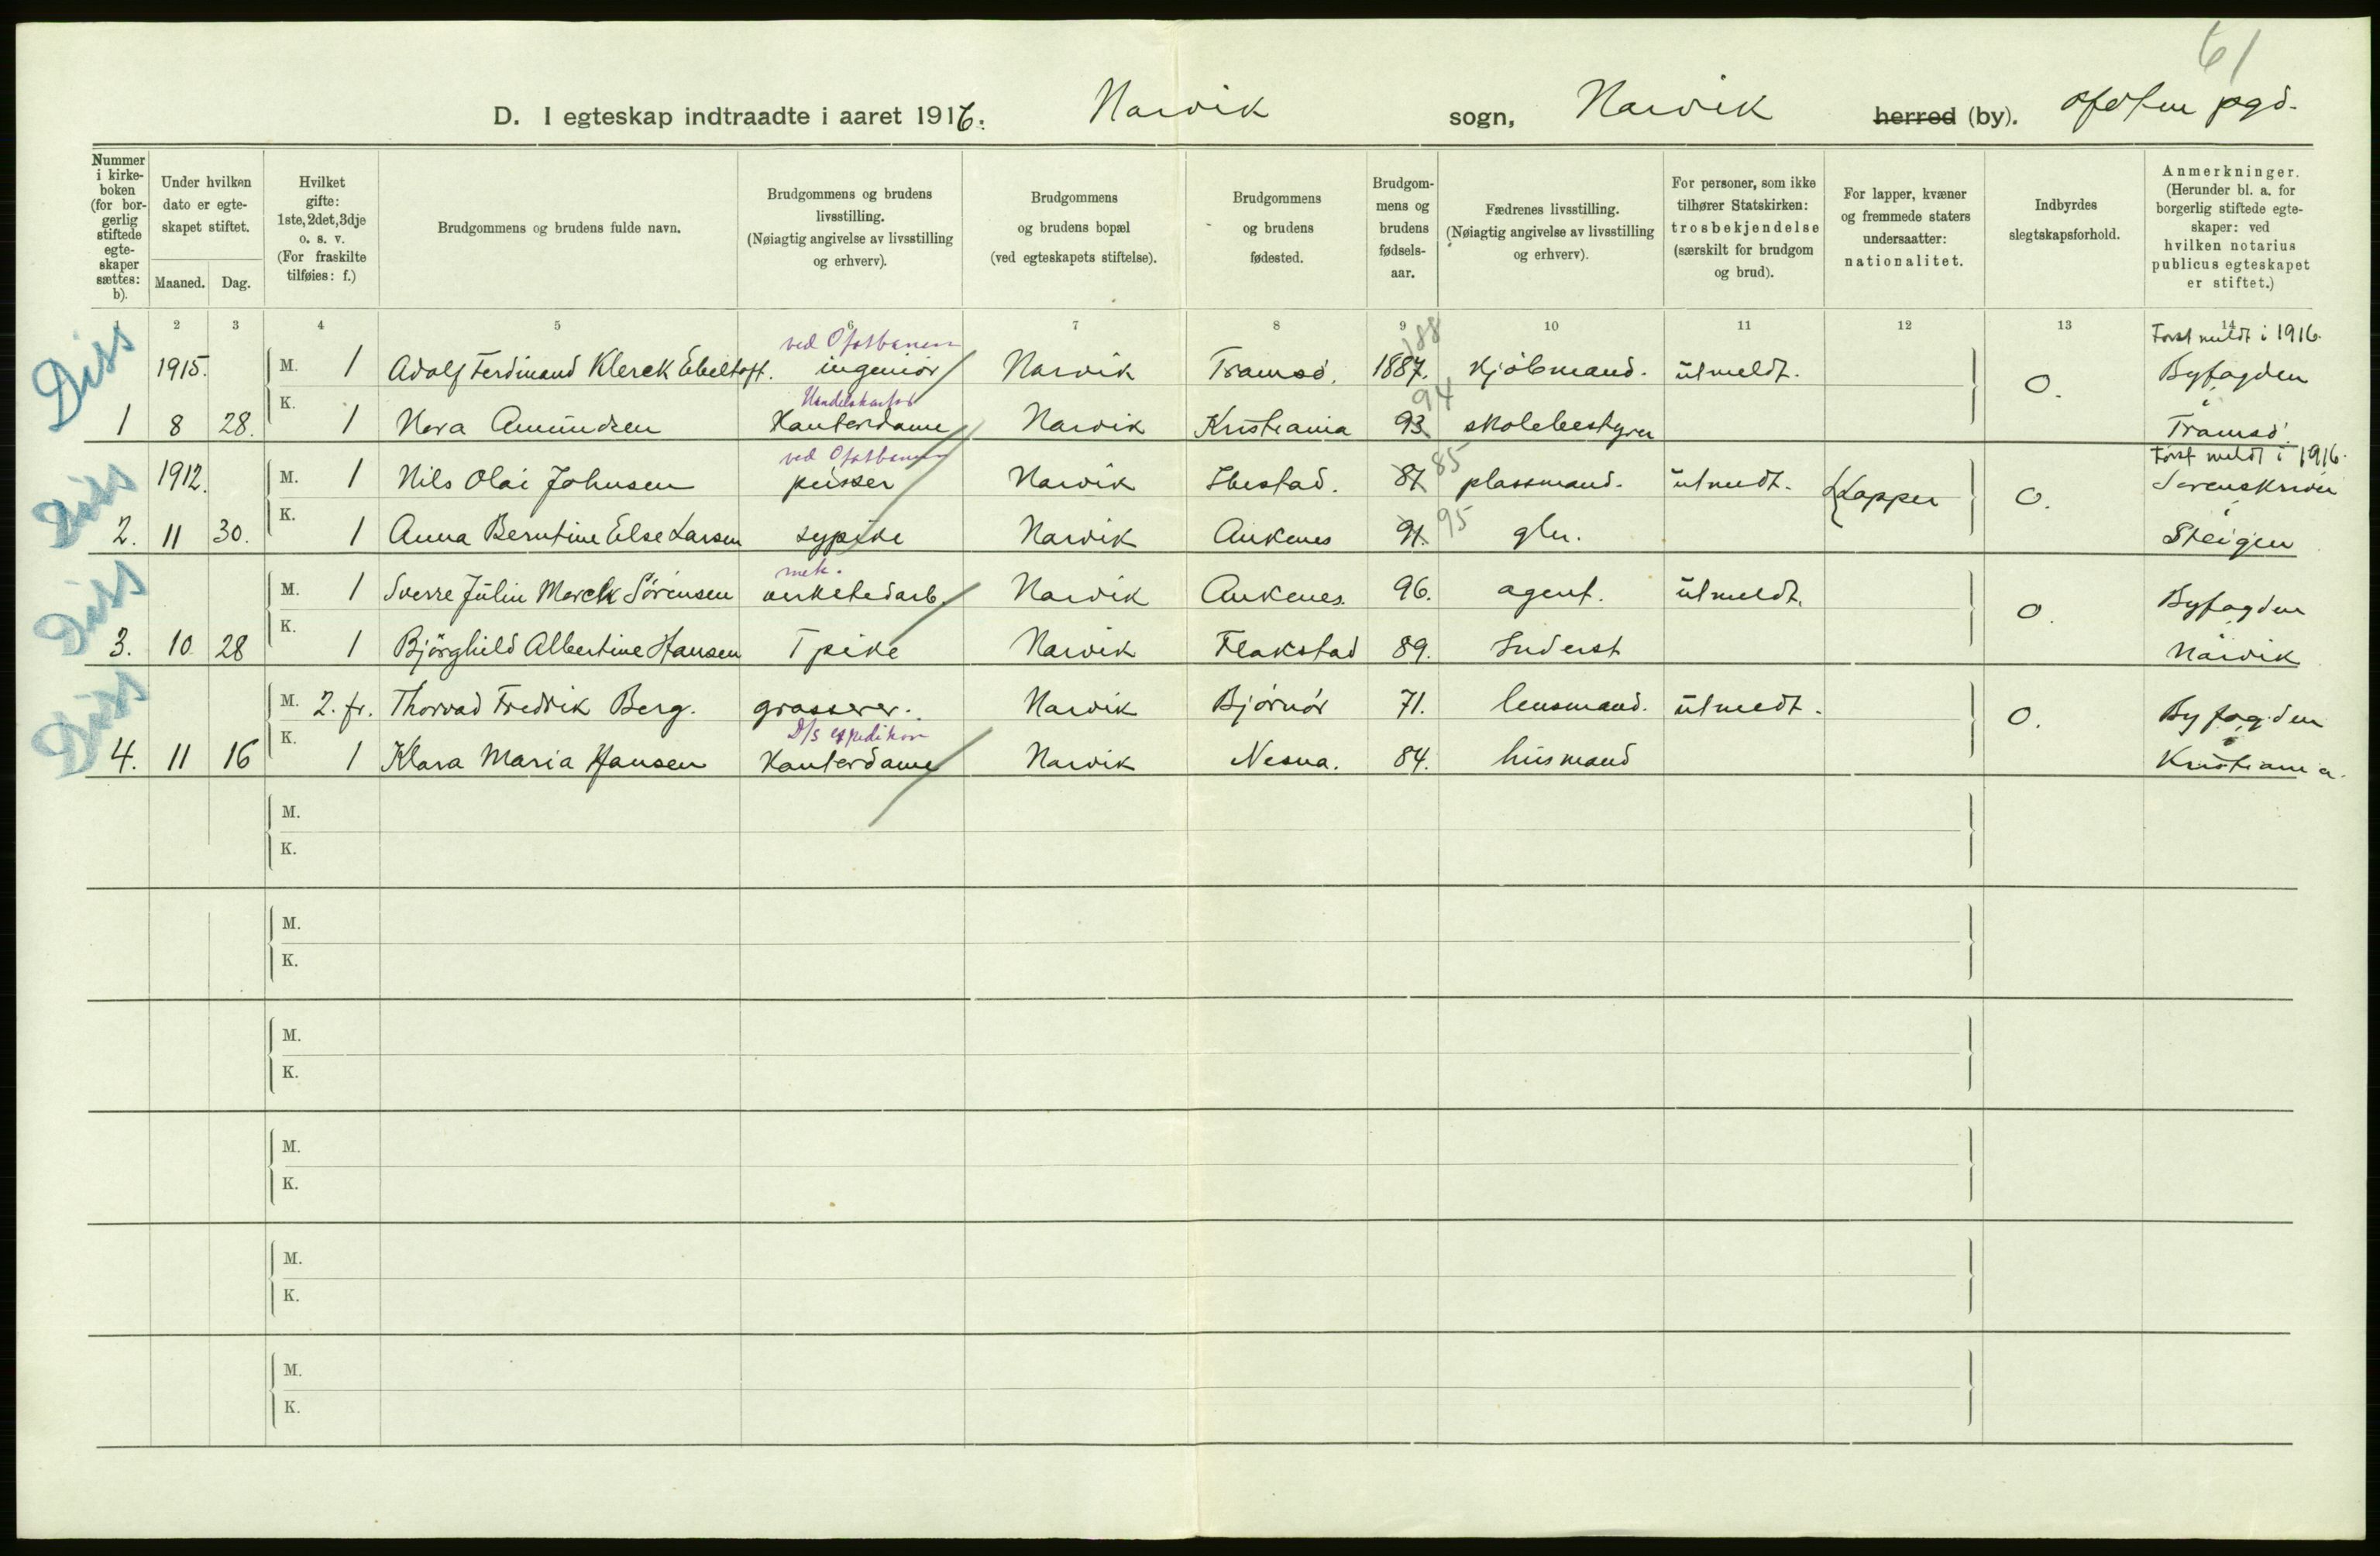 61
D. I egteskap indtraadte i aaret 1916. Narvik sogn, Narvik herred (by). Ofoten pgd.
Nummer i kirke-boken (for bor-gerlig stiftede egte-skaper sættes: b).
Under hvilken dato er egte-skapet stiftet.
Maaned. Dag.
Hvilket gifte: 1ste, 2det, 3dje o. s. v. (For fraskilte tilføies: f.)
Brudgommens og brudens fulde navn.
Brudgommens og brudens livsstilling. (Nøiagtig angivelse av livsstilling og erhverv).
Brudgommens og brudens bopæl (ved egteskapets stiftelse).
Brudgommens og brudens fødested.
Brudgom-mens og brudens fødsels-aar.
Fædrenes livsstilling. (Nøiagtig angivelse av livsstilling og erhverv).
For personer, som ikke tilhører Statskirken: trosbekjendelse (særskilt for brudgom og brud).
For lapper, kvæner og fremmede staters undersaatter: nationalitet.
Indbyrdes slegtskapsforhold.
Anmerkninger. (Herunder bl. a. for borgerlig stiftede egte-skaper: ved hvilken notarius publicus egteskapet er stiftet.)
1 2 3 4 5 6 7 8 9 10 11 12 13 14
Diss
ved Ofotbanen 88 Først meldt i 1916.
1915. M. 1 Adolf Ferdinand Klerck Ebeltoft. ingeniør Narvik Tromsø. 1887. Kjøbmand. utmeldt. 0. Byfogden
Handelskontor 94 i
1 8 28. K. 1 Nora Amundsen Kontordame Narvik Kristiania 93. skolebestyrer Tromsø.
Diss
ved Ofotbanen 85 Først meldt i 1916.
1912. M. 1 Nils Olai Johnsen pusser Narvik Ibestad. 87 plassmand. utmeldt. Lapper 0. Sorenskriver
95 i
2. 11 30. K. 1 Anna Berntine Else Larsen sypike Narvik Ankenes 91. gbr. Steigen
Diss
mek.
M. 1 Sverre Julin Marck Sörensen verkstedarb. Narvik Ankenes. 96. agent. utmeldt. 0. Byfogden
3. 10 28 K. 1 Björghild Albertine Hansen Tpike Narvik Flakstad 89. Inderst Narvik
Diss
M. 2. fr. Thorvad Fredrik Berg. grosserer. Narvik Bjørnør 71. lensmand. utmeldt. 0. Byfogden
D/s expedition i
4. 11 16 K. 1 Klara Maria Hansen Kontordame Narvik Nesna. 84. husmand Kristiania.
M.
K.
M.
K.
M.
K.
M.
K.
M.
K.
M.
K.